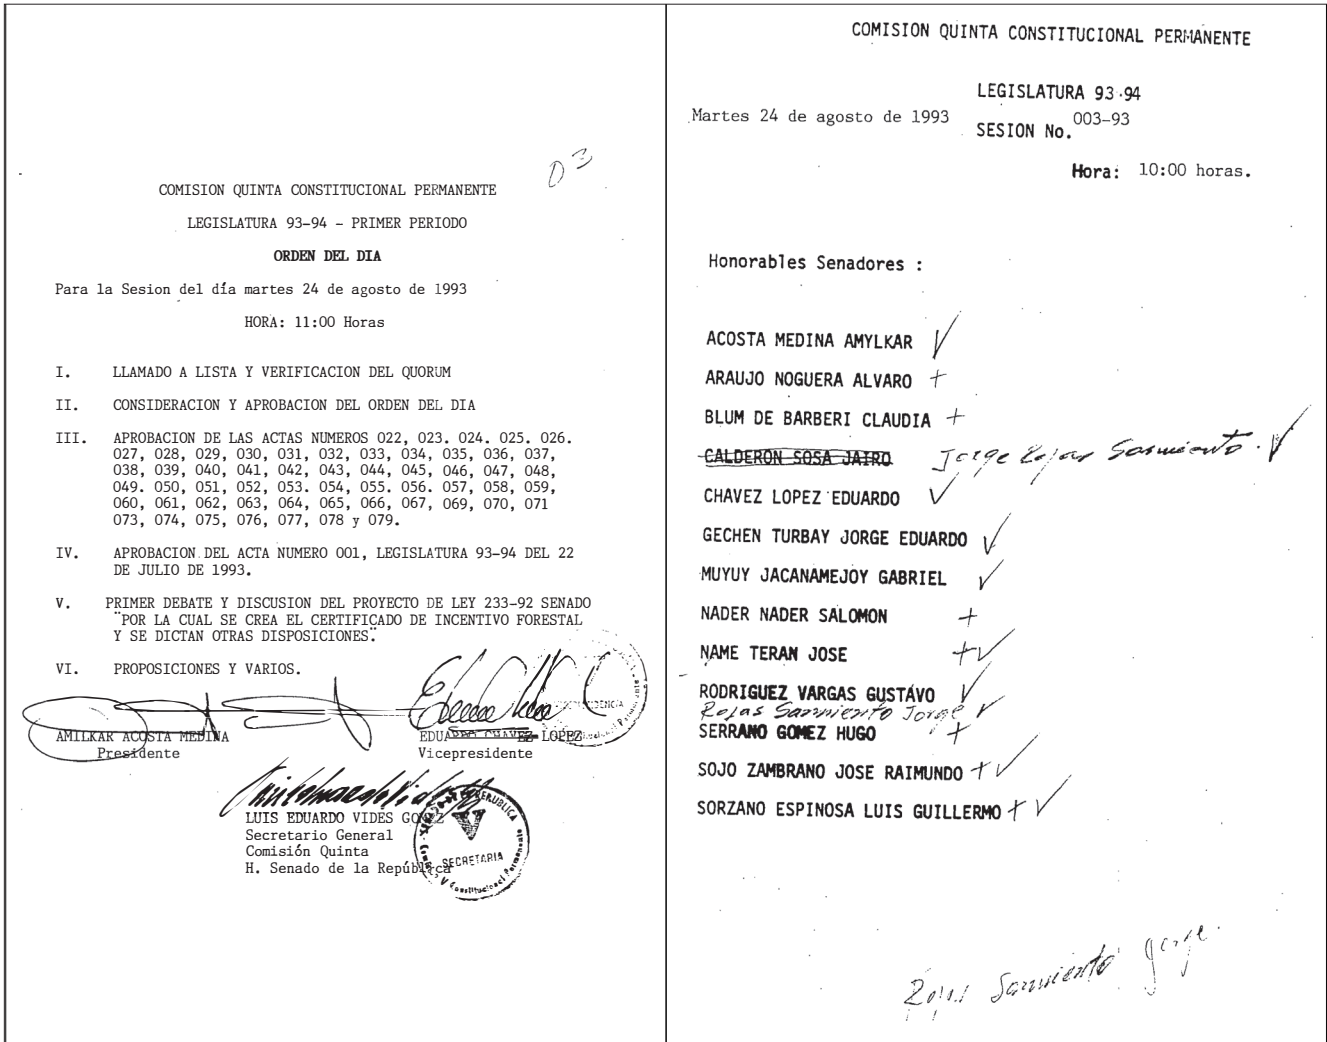 03
COMISION QUINTA CONSTITUCIONAL PERMANENTE
LEGISLATURA 93-94 - PRIMER PERIODO
ORDEN DEL DIA
Para la Sesion del día martes 24 de agosto de 1993
HORA: 11:00 Horas
I. LLAMADO A LISTA Y VERIFICACION DEL QUORUM
II. CONSIDERACION Y APROBACION DEL ORDEN DEL DIA
III. APROBACION DE LAS ACTAS NUMEROS 022, 023. 024. 025. 026.
027, 028, 029, 030, 031, 032, 033, 034, 035, 036, 037,
038, 039, 040, 041, 042, 043, 044, 045, 046, 047, 048,
049. 050, 051, 052, 053. 054, 055. 056. 057, 058, 059,
060, 061, 062, 063, 064, 065, 066, 067, 069, 070, 071
073, 074, 075, 076, 077, 078 y 079.
IV. APROBACION DEL ACTA NUMERO 001, LEGISLATURA 93-94 DEL 22
DE JULIO DE 1993.
V. PRIMER DEBATE Y DISCUSION DEL PROYECTO DE LEY 233-92 SENADO
"POR LA CUAL SE CREA EL CERTIFICADO DE INCENTIVO FORESTAL
Y SE DICTAN OTRAS DISPOSICIONES".
VI. PROPOSICIONES Y VARIOS.
AMILKAR ACOSTA MEDINA
Presidente
EDUARDO CHAVEZ LOPEZ
Vicepresidente
LUIS EDUARDO VIDES GOMEZ
Secretario General
Comisión Quinta
H. Senado de la República
SECRETARIA
COMISION QUINTA CONSTITUCIONAL PERMANENTE
LEGISLATURA 93-94
Martes 24 de agosto de 1993
SESION No. 003-93
Hora: 10:00 horas.
Honorables Senadores :
ACOSTA MEDINA AMYLKAR ✓
ARAUJO NOGUERA ALVARO +
BLUM DE BARBERI CLAUDIA +
CALDERON SOSA JAIRO Jorge Rojas Sarmiento. ✓
CHAVEZ LOPEZ EDUARDO ✓
GECHEN TURBAY JORGE EDUARDO ✓
MUYUY JACANAMEJOY GABRIEL ✓
NADER NADER SALOMON +
NAME TERAN JOSE +✓
RODRIGUEZ VARGAS GUSTAVO ✓
Rojas Sarmiento Jorge ✓
SERRANO GOMEZ HUGO +
SOJO ZAMBRANO JOSE RAIMUNDO +✓
SORZANO ESPINOSA LUIS GUILLERMO +✓
Rojas Sarmiento Jorge.